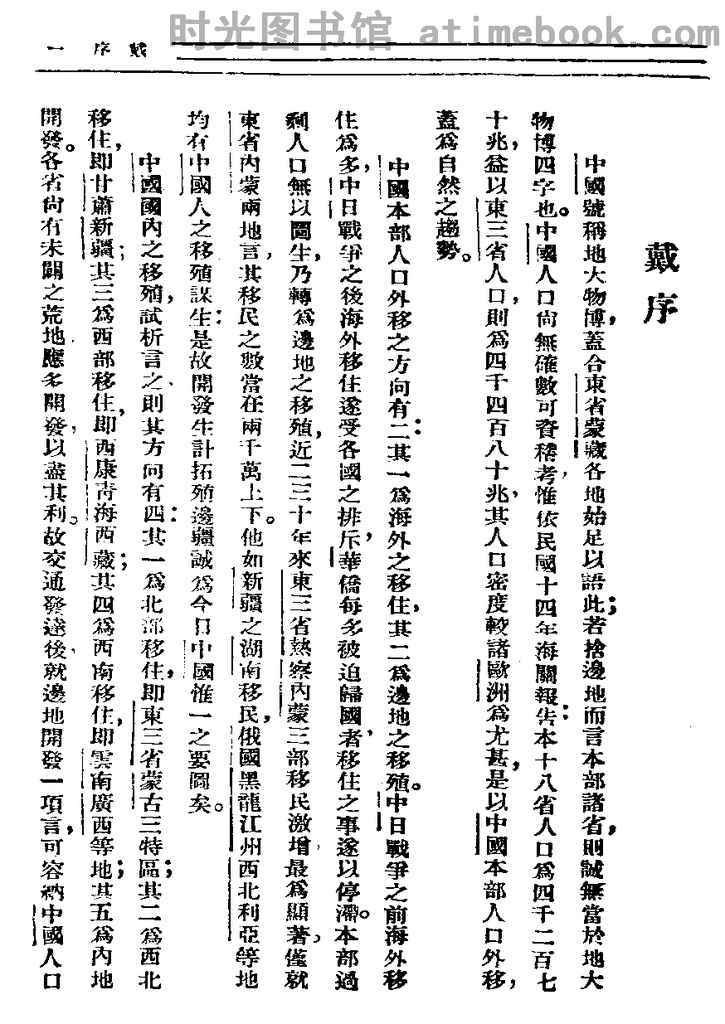 时光图书馆 atimebook.com
戴序 一
戴序
中國號稱地大物博，蓋合東省蒙藏各地始足以語此；若捨邊地而言本部諸省，則誠無當於地大
物博四字也。中國人口尙無確數可資稽考，惟依民國十四年海關報告：本十八省人口爲四千二百七
十兆，益以東三省人口，則爲四千四百八十兆，其人口密度較諸歐洲爲尤甚，是以中國本部人口外移，
蓋爲自然之趨勢。
中國本部人口外移之方向有二：其一爲海外之移住，其二爲邊地之移殖。中日戰爭之前海外移
住爲多，中日戰爭之後海外移住遂受各國之排斥，華僑每多被迫歸國者，移住之事遂以停滯。本部過
剩人口無以圖生，乃轉爲邊地之移殖，近二三十年來東三省熱察內蒙三部移民激增，最爲顯著，僅就
東省內蒙兩地言，其移民之數當在兩千萬上下。他如新疆之湖南移民，俄國黑龍江州西北利亞等地
均有中國人之移殖謀生：是故開發生計拓殖邊疆誠爲今日中國惟一之要圖矣。
中國國內之移殖，試析言之，則其方向有四：其一爲北部移住，即東三省蒙古三特區；其二爲西北
移住，即甘肅新疆；其三爲西部移住，即西康靑海西藏；其四爲西南移住，即雲南廣西等地；其五爲內地
開發。各省尙有未闢之荒地，應多開發，以盡其利。故交通發達後，就邊地開發一項言，可容納中國人口